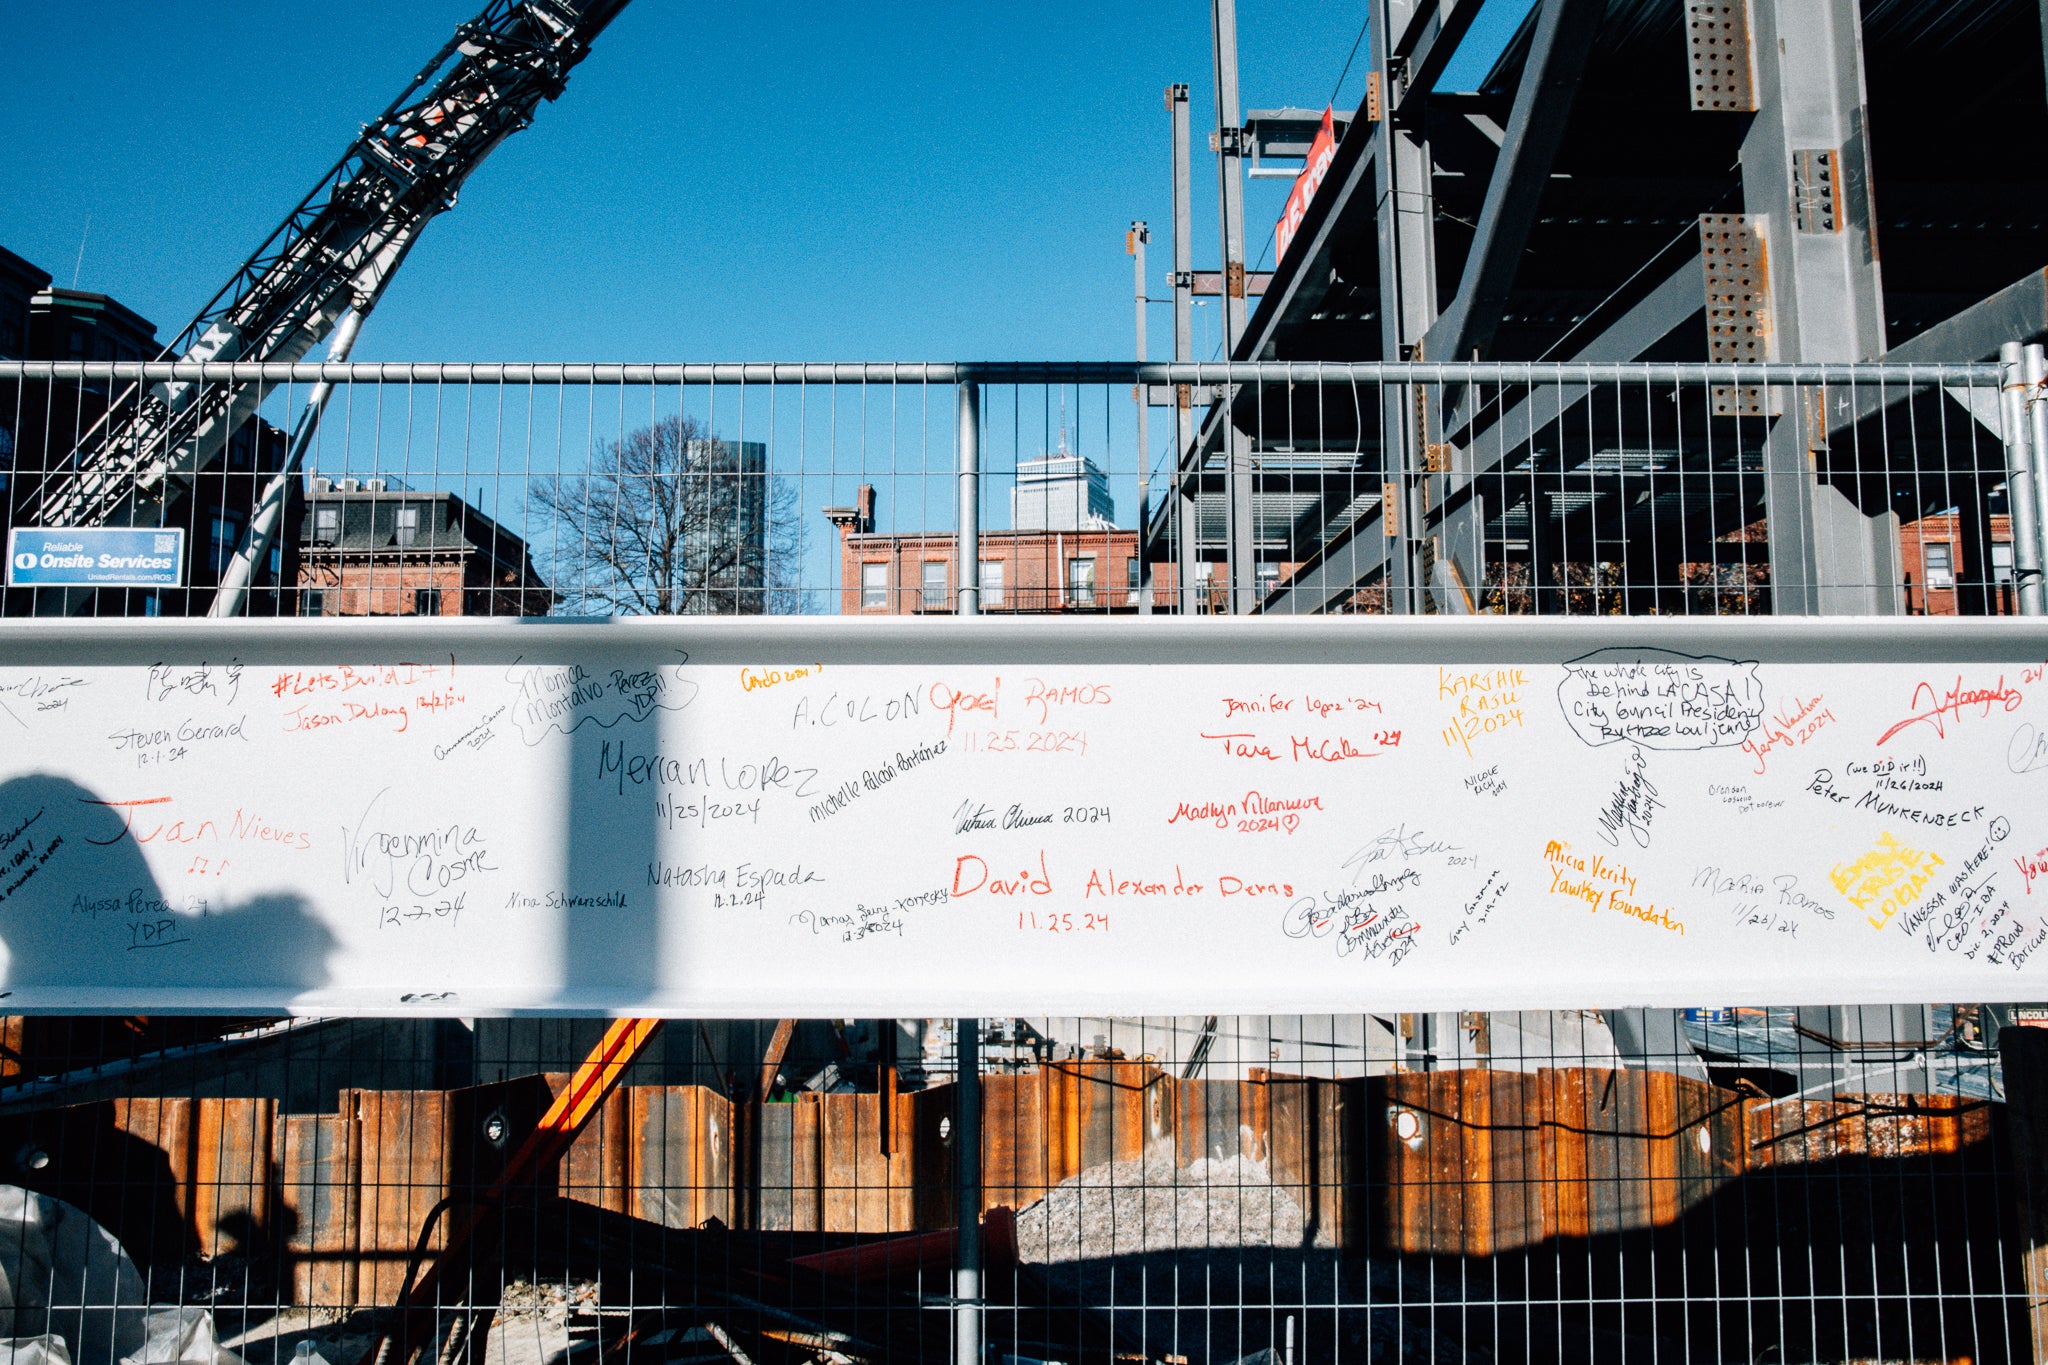 Reliable
Onsite Services
UnitedRentals.com/ROS
2024
Steven Gerrard
12.1.24
#LetsBuildIt!
Jason Dulong 12/2/24
Monica
Montalvo-Perez
YDP!!
2024
2024
A. COLON
Joel RAMOS
11.25.2024
Jennifer Lopez '24
Tara McCalla '24
KARTHIK
RAJU
11/2024
The whole city is
behind LA CASA!
City Council President
Ruthzee Louijeune
Yenly Ventura
2024
Merian Lopez
11/25/2024
michelle Falcón Fontánez
2024
Madlyn Villanueva
2024
NICOLE
RICH
2024
2024
(we DID it!!)
11/26/2024
Peter MUNKENBECK
Juan Nieves
Virgenmina
Cosme
12-2-24
Alyssa Perea '24
YDP!
Nina Schwarzschild
Natasha Espada
12.2.24
David Alexander Deras
11.25.24
2024
Community
2024
Guy Guzman
Alicia Verity
Yawkey Foundation
Maria Ramos
11/26/24
EMILY
KRUSE
LOGAN
VANESSA WAS HERE!
CEO-IBA
Dec. 2, 2024
#PROUD
Boricua!
LINCOLN